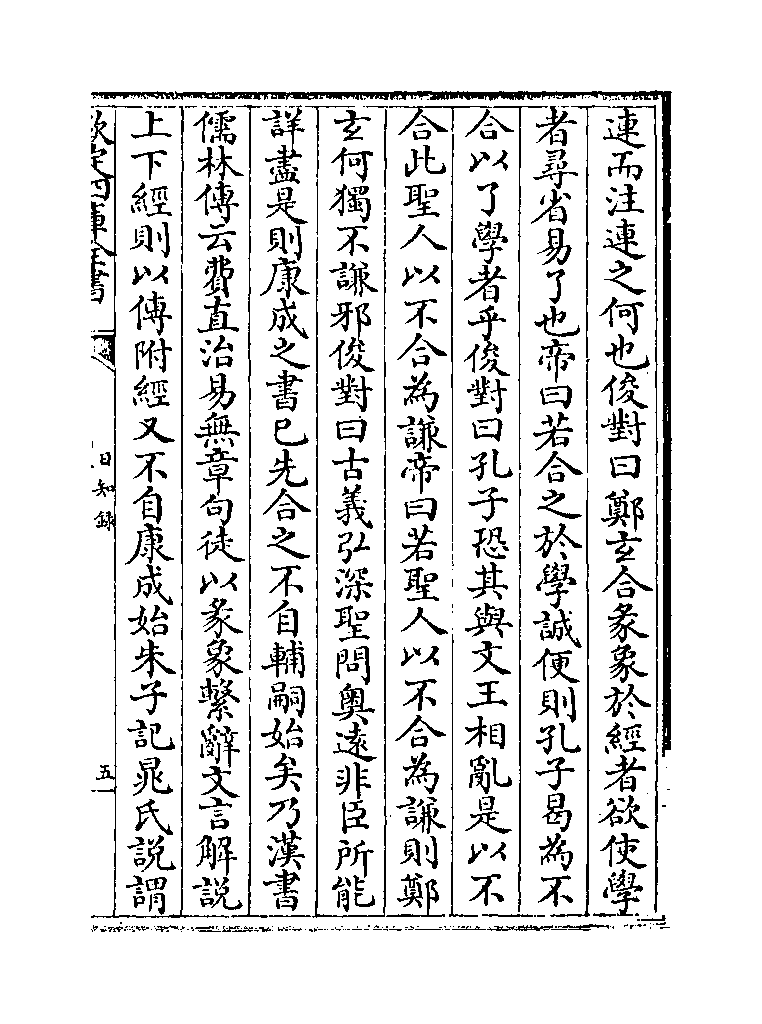 連而注連之何也俊對曰鄭玄合彖象於經者欲使學
者尋省易了也帝曰若合之於學誠便則孔子曷為不
合以了學者乎俊對曰孔子恐其與文王相亂是以不
合此聖人以不合為謙帝曰若聖人以不合為謙則鄭
玄何獨不謙邪俊對曰古義弘深聖問奥逺非臣所能
詳盡是則康成之書已先合之不自輔嗣始矣乃漢書
儒林傳云費直治易無章句徒以彖象繫辭文言解說
上下經則以傳附經又不自康成始朱子記晁氏說謂
欽定四庫全書
日知録
五